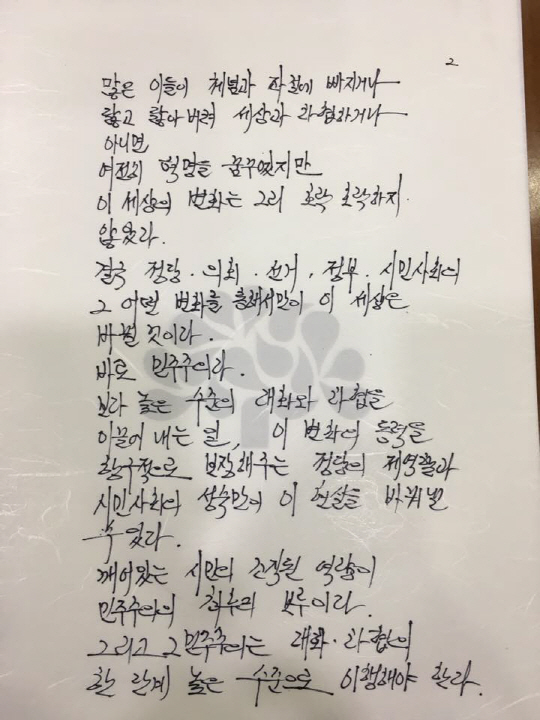 2
많은 이들이 체념과 좌절에 빠지거나
닳고 닳아버려 세상과 타협하거나
아니면
여전히 혁명을 꿈꾸었지만
이 세상의 변화는 그리 호락호락하지
않았다.
결국 정당·의회·선거·정부·시민사회의
그 어떤 변화를 통해서만이 이 세상은
바뀔 것이라.
바로 민주주의라.
보다 높은 수준의 대화와 타협을
이끌어 내는 일, 이 변화의 동력을
항구적으로 보장해주는 정당의 제역할과
시민사회의 성숙만이 이 현실을 바꿔낼
수 있다.
깨어있는 시민의 조직된 역량이
민주주의의 최후의 보루이다.
그리고 그 민주주의는 대화·타협의
한 단계 높은 수준으로 이행해야 한다.